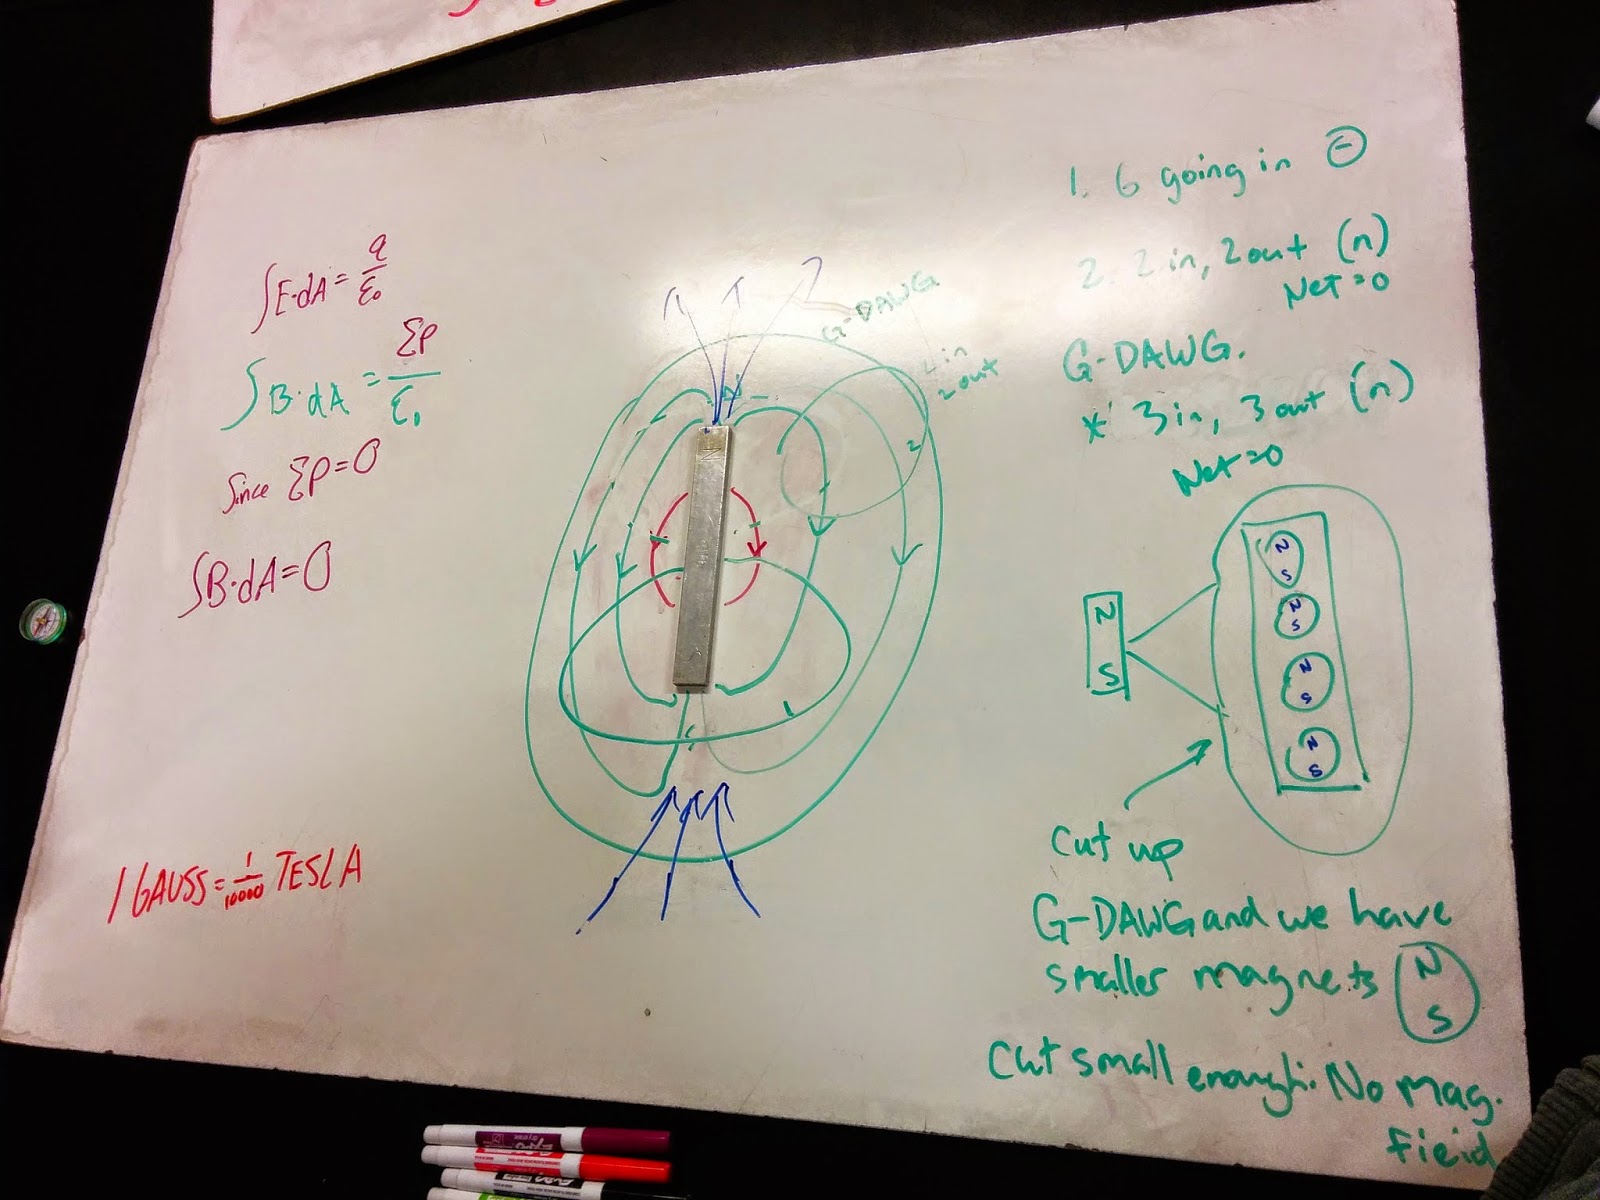 ∫E·dA = q/ε₀
∫B·dA = ΣP/ε₀
Since ΣP=0
∫B·dA=0
1 GAUSS = 1/10000 TESLA
G-DAWG
2 in
2 out
2
N
1
S
1. 6 going in ⊖
2. 2 in, 2 out (n)
Net = 0
G-DAWG.
* 3 in, 3 out (n)
Net = 0
N
S
N
S
N
S
N
S
N
S
Cut up
G-DAWG and we have
smaller magnets
N
S
Cut small enough. No mag.
field